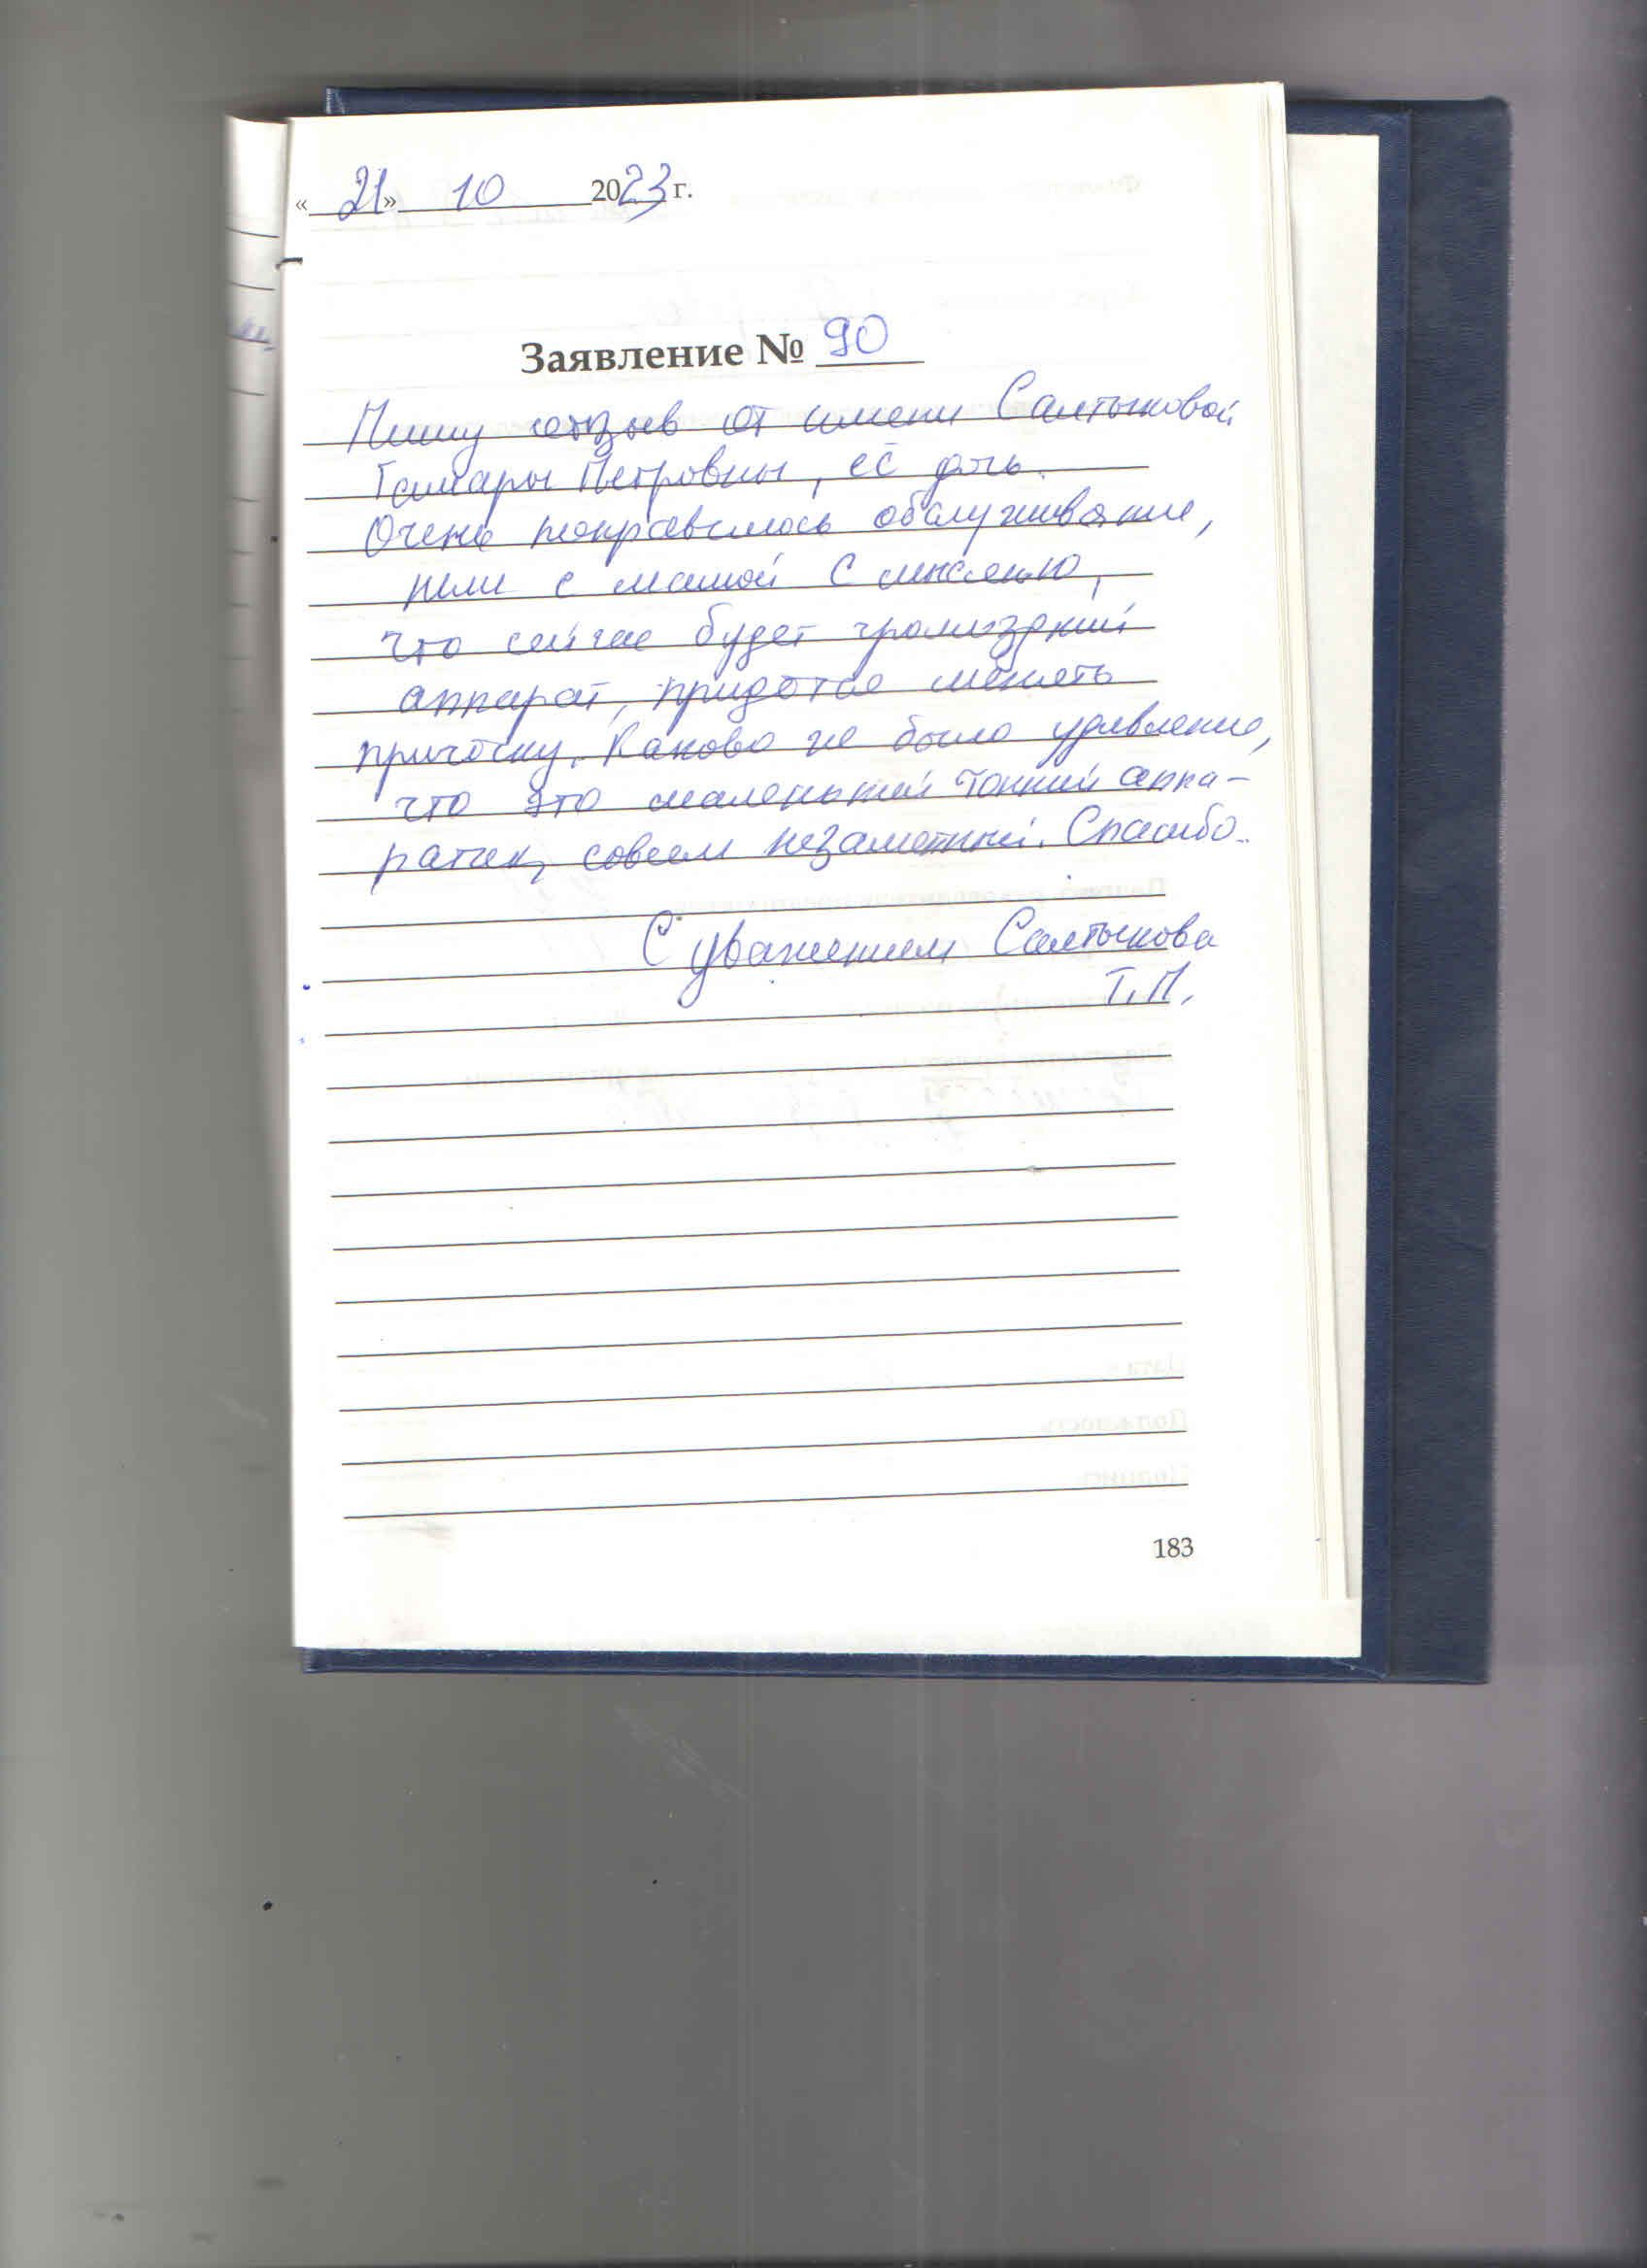 «21» 10 2023 г.
Заявление № 90
Пишу отзыв от имени Салтыковой
Тамары Петровны, её дочь.
Очень понравилось обслуживание,
шли с мамой с мыслью,
что сейчас будет громоздкий
аппарат, придётся менять
причёску. Каково же было удивление,
что это маленький тонкий аппа-
ратик, совсем незаметный. Спасибо.
С уважением Салтыкова
Т.П.
183